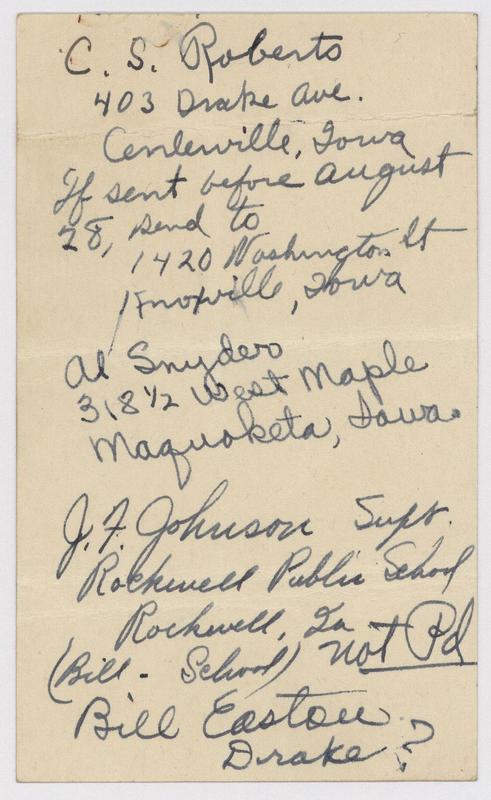 C. S. Roberts
403 Drake Ave.
Centerville, Iowa
If sent before August
28, send to
1420 Washington St
Knoxville, Iowa
Al Snyders
318 1/2 West Maple
Maquoketa, Iowa.
J. F. Johnson Supt.
Rockwell Public School
Rockwell, Ia
(Bill - School) Not Pd
Bill Easton
Drake?